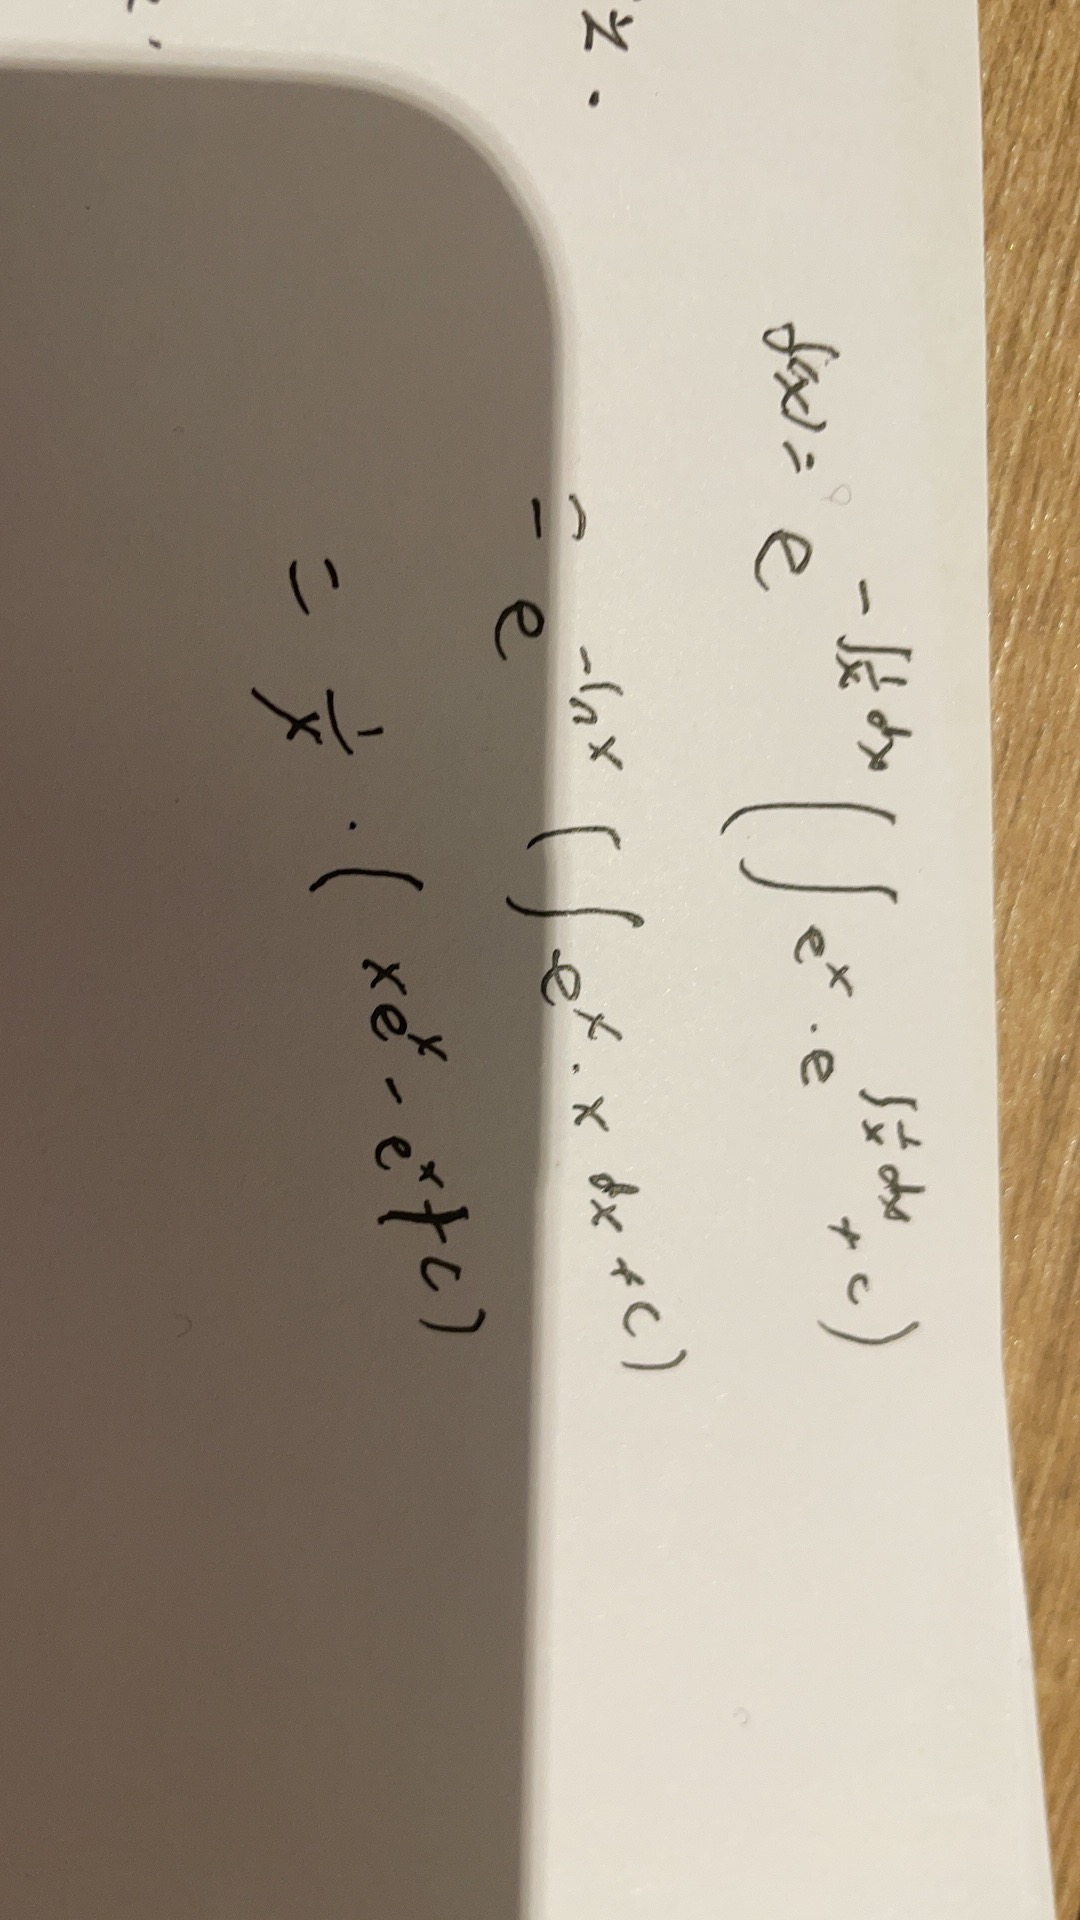 f(x) = e^{-∫\frac{1}{x}dx} (∫ e^x · e^{∫\frac{1}{x}dx} + c)
= e^{-ln x} (∫ e^x · x dx + c)
= \frac{1}{x} · (xe^x - e^x + c)